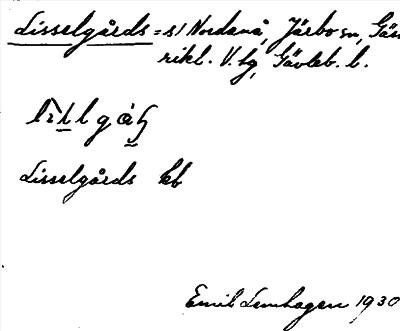 Lisselgårds = s/ Nordanå, Järbo sn, Gäs
rikl. V. tg, Gävleb. l.
Lisselgårds kb
Emil Lemhagen 1930